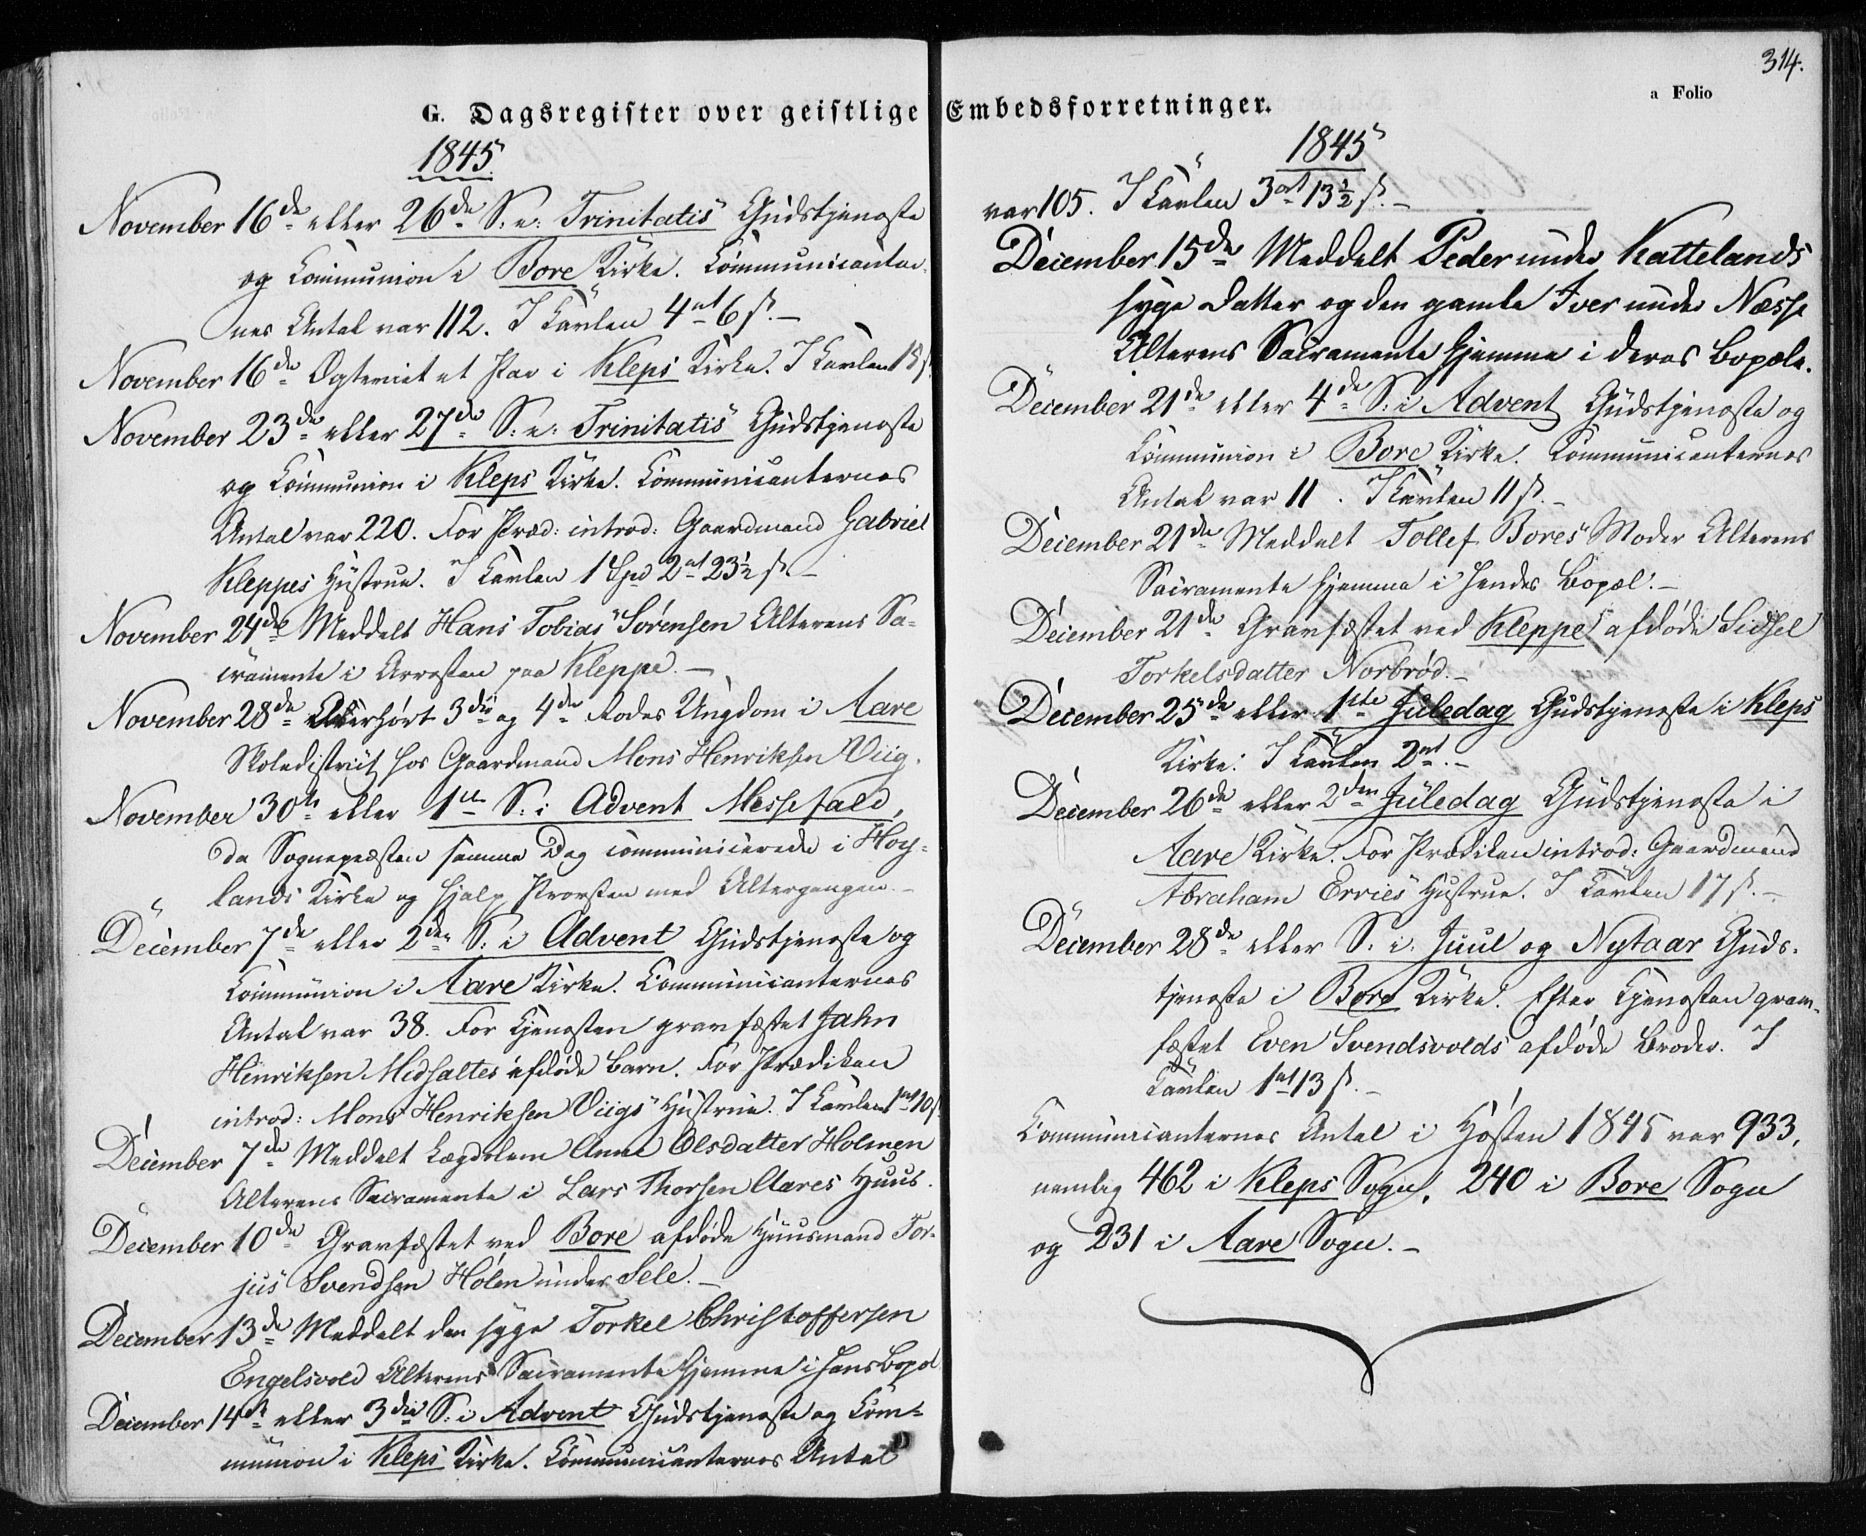 314.
a Folio
G. Dagsregister over geistlige Embedsforretninger.
1845
November 16de eller 26de S. e. Trinitatis Gudstjeneste
og Communion i Bore Kirke. Communicanter-
nes Antal var 112. I Tavlen 4 ort 6 s.
November 16de Egteviet et Par i Kleps Kirke. I Tavlen 18 s.
November 23de eller 27de S. e. Trinitatis Gudstjeneste
og Communion i Kleps Kirke. Communicanternes
Antal var 220. For Præd: introd: Gaardmand Gabriel
Kleppes Hustrue. I Tavlen 1 Spd 2 ort 23½ s.
November 24de Meddelt Hans Tobias Sørensen Alterens Sa-
cramente i Arresten paa Kleppe.
November 28de Overhørt 3die og 4de Rodes Ungdom i Aare
Skoledistrict hos Gaardmand Mons Henriksen Viig.
November 30te eller 1ste S. i Advent Messefald,
da Sognepræsten samme Dag communicerede i Høy-
lands Kirke og hjalp Provsten med Altergangen.
December 7de eller 2den S. i Advent Gudstjeneste og
Communion i Aare Kirke. Communicanternes
Antal var 38. For Tjenesten gravfæstet Jahn
Henriksen Midsaltes afdøde Barn. For Prædiken
introd: Mons Henriksen Viigs Hustrue. I Tavlen 1 ort 10 s.
December 7de Meddelt Lægdslem Anna Olsdatter Holmen
Alterens Sacramente i Lars Thorsen Aares Huus.
December 10de Gravfæstet ved Bore afdøde Huusmand Tor-
jus Svendsen Holen under Sele.
December 13de Meddelt den syge Torkel Christoffersen
Engelsvold Alterens Sacramente hjemme i hans Bopæl
December 14de eller 3die S. i Advent Gudstjeneste og Com-
munion i Kleps Kirke. Communicanternes Antal
1845
var 105. I Tavlen 3 ort 13½ s.
December 15de Meddelt Peder under Kattelands
syge Datter og den gamle Iver under Næsse
Alterens Sacramente hjemme i deres Bopæle.
December 21de eller 4de S. i Advent Gudstjeneste og
Communion i Bore Kirke. Communicanternes
Antal var 11. I Tavlen 11 s.
December 21de Meddelt Tollef Bores Moder Alterens
Sacramente hjemme i hendes Bopæl.
December 21de Gravfæstet ved Kleppe afdøde Sidsel
Torkelsdatter Norbrød.
December 25de eller 1ste Juledag Gudstjeneste i Kleps
Kirke. I Tavlen 2 ort.
December 26de eller 2den Juledag Gudstjeneste i
Aare Kirke. For Prædiken introd: Gaardmand
Abraham Ervies Hustrue. I Tavlen 17 s.
December 28de eller S. i. Juul og Nytaar Guds-
tjeneste i Bore Kirke. Efter Tjenesten grav-
fæstet Even Svendsvolds afdøde Broder. I
Tavlen 1 ort 13 s.
Communicanternes Antal i Høsten 1845 var 933,
nemlig 462 i Kleps Sogn, 240 i Bore Sogn
og 231 i Aare Sogn.